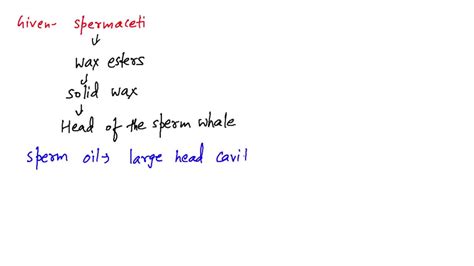 Given- spermaceti
↓
wax esters
↓
solid wax
↓
Head of the sperm whale
sperm oil→ large head cavil